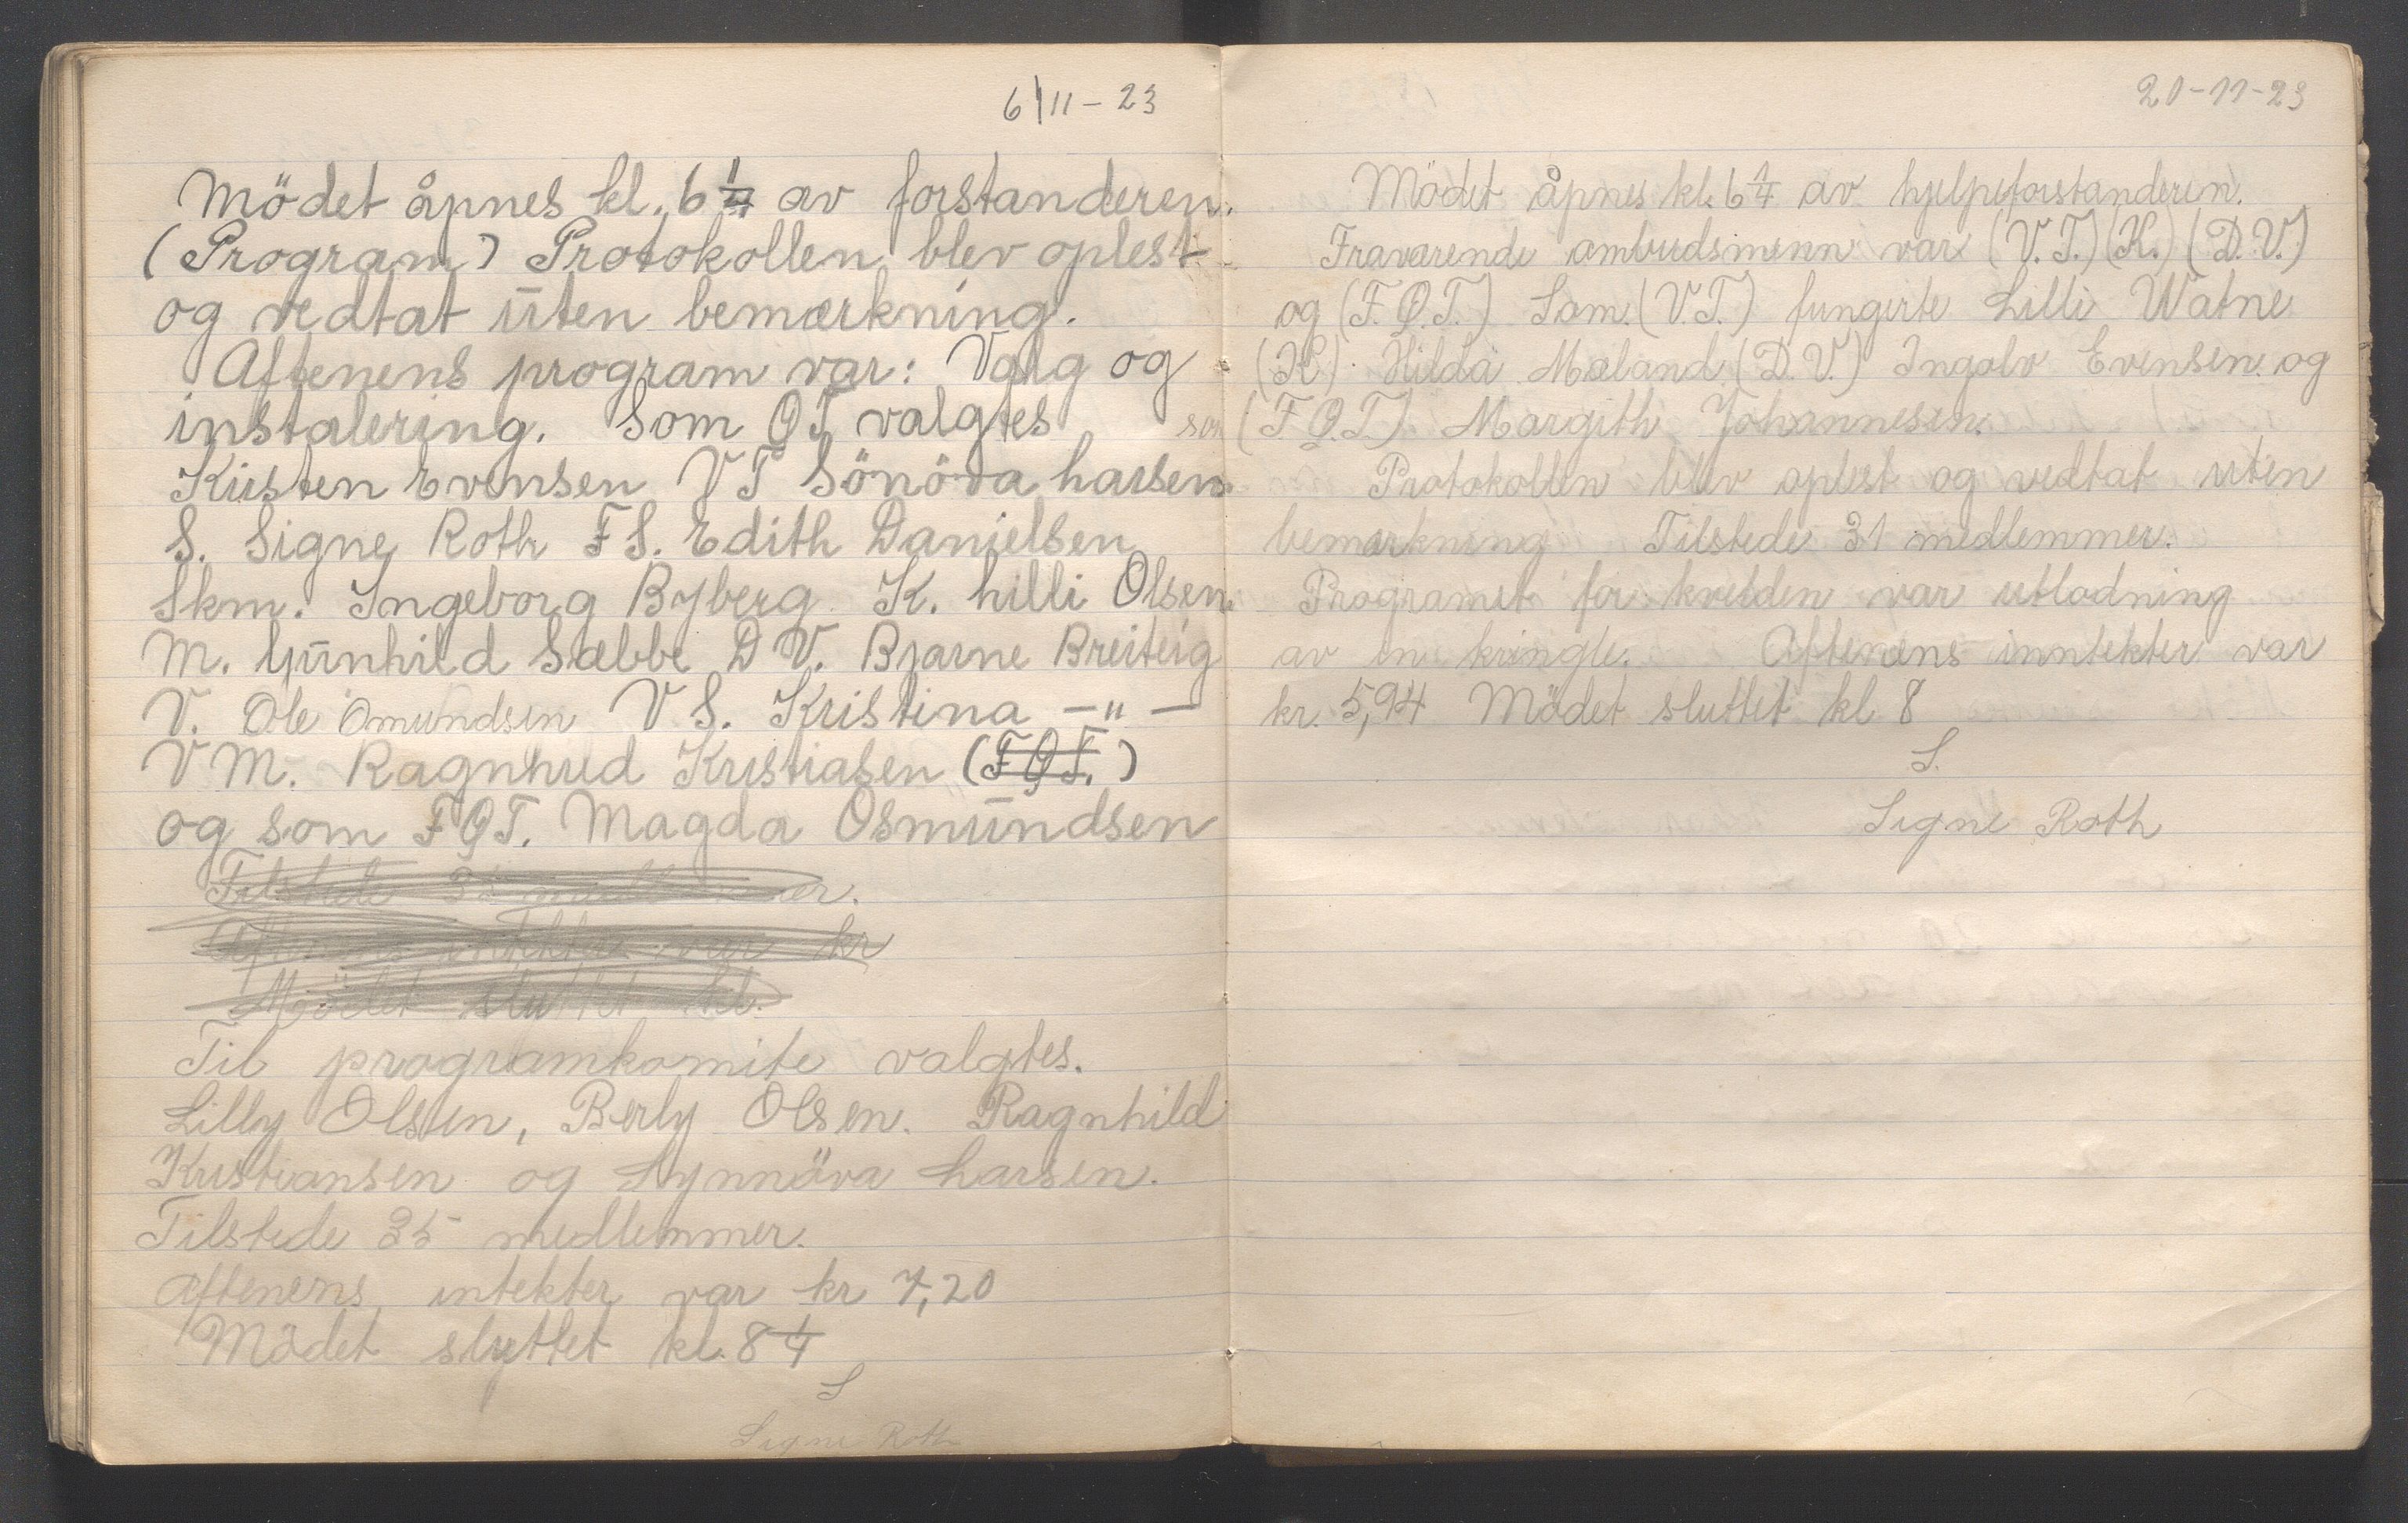 6/11-23
Mödet åpnes kl. 6 1/4 av forstanderen.
(Program) Protokollen blev oplest
og vedtat uten bemærkning.
Aftenens program var: Valg og
instalering. Som QT valgtes
Kirsten Evensen VT Sönöva Larsen
S. Signe Roth FS. Edith Danielsen
Skm. Ingeborg Byberg K. Lilli Olsen.
M. Gunhild Sæbbe D V. Bjarne Breiteig
V. Ole Omundsen VS. Kristina -"-
VM. Ragnhild Kristiasen (FQT.)
og som FQT. Magda Osmundsen
Tilstede 35 medlemmer.
Aftenens intekter var kr
Mödet sluttet kl.
Til programkomite valgtes.
Lilly Olsen, Berly Olsen. Ragnhild
Kristiansen og Synnöva Larsen.
Tilstede 35 medlemmer.
Aftenens intekter var kr 7,20
Mödet sluttet kl. 8 1/4
S
Signe Roth
20-11-23
Mödet åpnes kl. 6 1/4 av hjelpeforstanderen.
Fraværende ambudsmenn var (V.T.) (K.) (D.V.)
og (F.Q.T.) Som (V.T.) fungerte Lilli Watne
(K) Hilda Mæland (D.V.) Ingolv Evensen og
(F.Q.T.) Margith Johannesen.
Protokollen blev oplest og vedtat uten
bemærkning Tilstede 31 medlemmer.
Programet for kvelden var utlodning
av en kringle. Aftenens inntekter var
kr. 5,94 Mödet sluttet kl 8
S.
Signe Roth